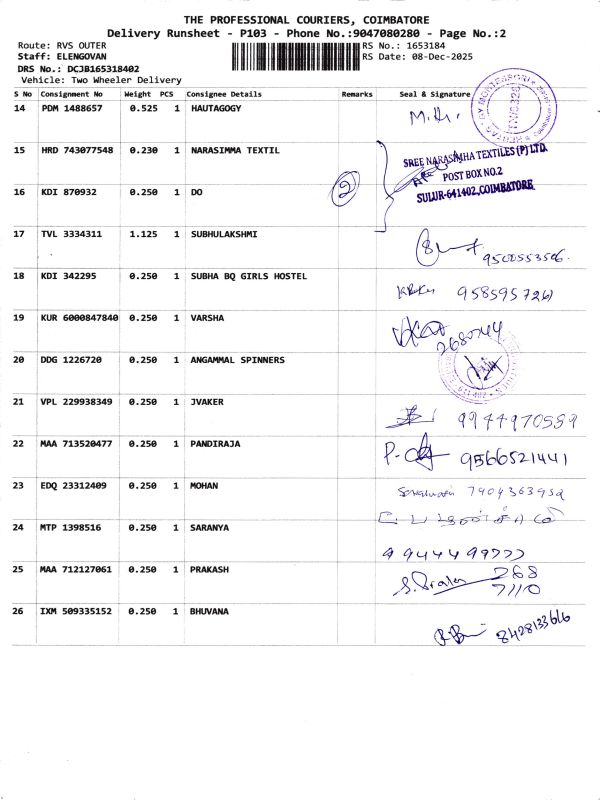 THE PROFESSIONAL COURIERS, COIMBATORE
Delivery Runsheet - P103 - Phone No.:9047080280 - Page No.:2
Route: RVS OUTER RS No.: 1653184
Staff: ELENGOVAN RS Date: 08-Dec-2025
DRS No.: DCJB165318402
Vehicle: Two Wheeler Delivery
S No Consignment No Weight PCS Consignee Details Remarks Seal & Signature
14 PDM 1488657 0.525 1 HAUTAGOGY
15 HRD 743077548 0.230 1 NARASIMMA TEXTIL
SREE NARASIMHA TEXTILES (P) LTD.
POST BOX NO.2
SULUR-641402, COIMBATORE
16 KDI 870932 0.250 1 DO 2
17 TVL 3334311 1.125 1 SUBHULAKSHMI
9500553506
18 KDI 342295 0.250 1 SUBHA BQ GIRLS HOSTEL 9585957261
19 KUR 6000847840 0.250 1 VARSHA
2680744
20 DDG 1226720 0.250 1 ANGAMMAL SPINNERS
21 VPL 229938349 0.250 1 JVAKER
9944970589
22 MAA 713520477 0.250 1 PANDIRAJA 9566521441
23 EDQ 23312409 0.250 1 MOHAN 7904363952
24 MTP 1398516 0.250 1 SARANYA
9944499777
25 MAA 712127061 0.250 1 PRAKASH 268
7110
26 IXM 509335152 0.250 1 BHUVANA
8428133616